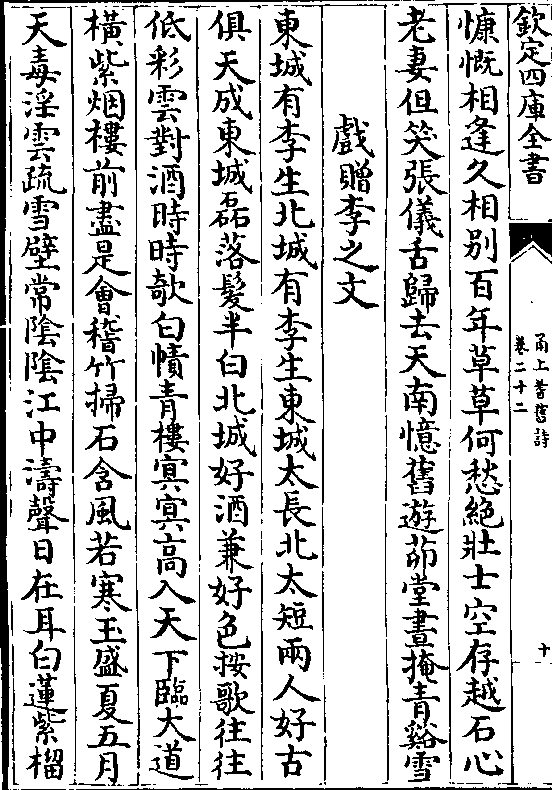 欽定四庫全書
甬上耆舊詩
卷二十二
十
慷慨相逢久相别百年草草何愁絶壯士空存越石心
老妻但笑張儀舌歸去天南憶舊遊茆堂晝掩青谿雪
戲贈李之文
東城有李生北城有李生東城太長北太短兩人好古
俱天成東城磊落髮半白北城好酒兼好色按歌往往
低彩雲對酒時時欹白幘青樓冥冥高入天下臨大道
橫紫烟樓前盡是會稽竹掃石含風若寒玉盛夏五月
天毒淫雲疏雪壁常陰陰江中濤聲日在耳白蓮紫榴